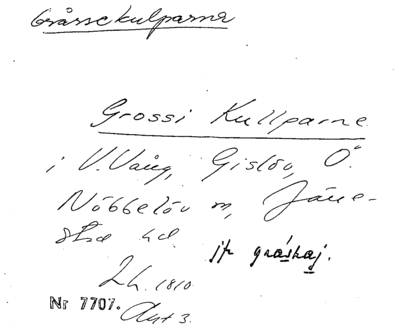 Gråssekulparna
Grossi Kullparne
i V. Vång, Gislöv, Ö.
Nöbbelöv m, Järre-
stad hd.
jfr gráskaj.
Lh. 1810
Nr 7707. Akt 3.